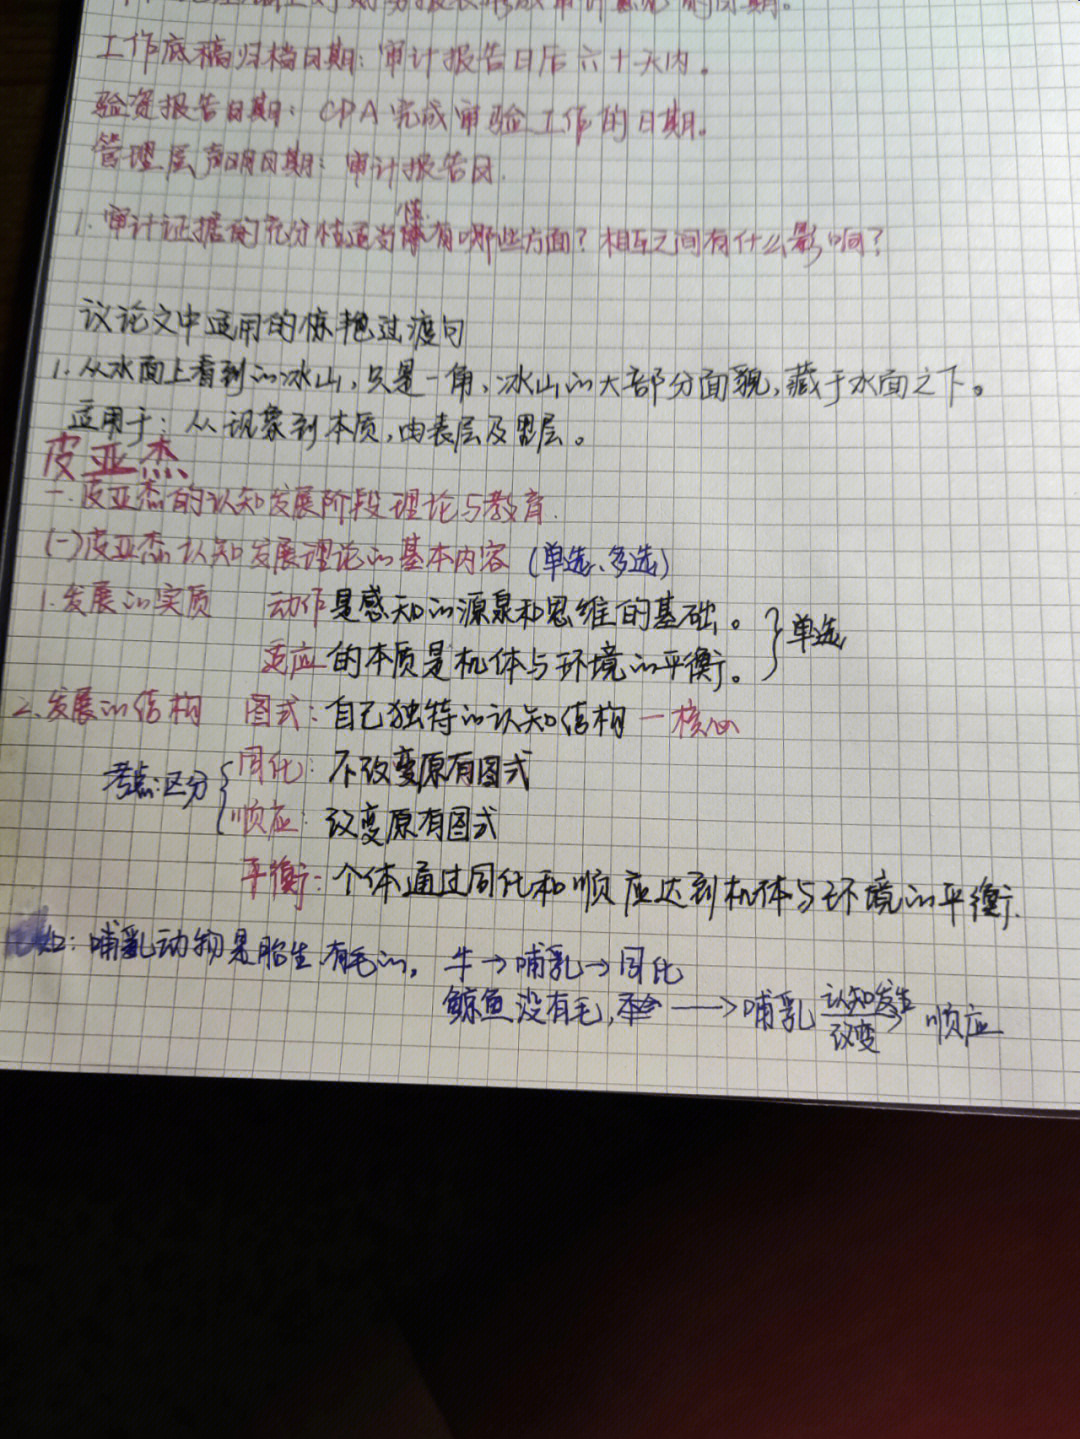 工作底稿归档日期：审计报告日后六十天内。
验资报告日期：CPA完成审验工作的日期。
管理层声明日期：审计报告日.
1.审计证据的充分性适当性有哪些方面？相互之间有什么影响？
议论文中适用的惊艳过渡句
1.从水面上看到的冰山，只是一角，冰山的大部分面貌，藏于水面之下。
适用于：从现象到本质，由表层及里层。
皮亚杰
一.皮亚杰的认知发展阶段理论与教育.
(一)皮亚杰认知发展理论的基本内容（单选、多选）
1.发展的实质 动作是感知的源泉和思维的基础。
适应的本质是机体与环境的平衡。 }单选
2.发展的结构 图式：自己独特的认知结构—核心
考点:区分{ 同化：不改变原有图式
顺应：改变原有图式
平衡：个体通过同化和顺应达到机体与环境的平衡.
如：哺乳动物是胎生.有毛的, 牛→哺乳→同化
鲸鱼没有毛, →哺乳 认知发生改变 顺应